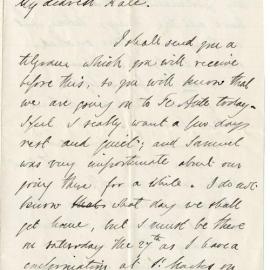 My dearest Kate.
I shall send you a
telegram which you will receive
before this, so you will know that
we are going on to Te Aute today.
I feel I really want a few days
rest and quiet; and Samuel
was very importunate about our
going there for a while. I do not
know what day we shall
get home, but I must be there
on Saturday the 27th as I have a
confirmation at St. Mark's on